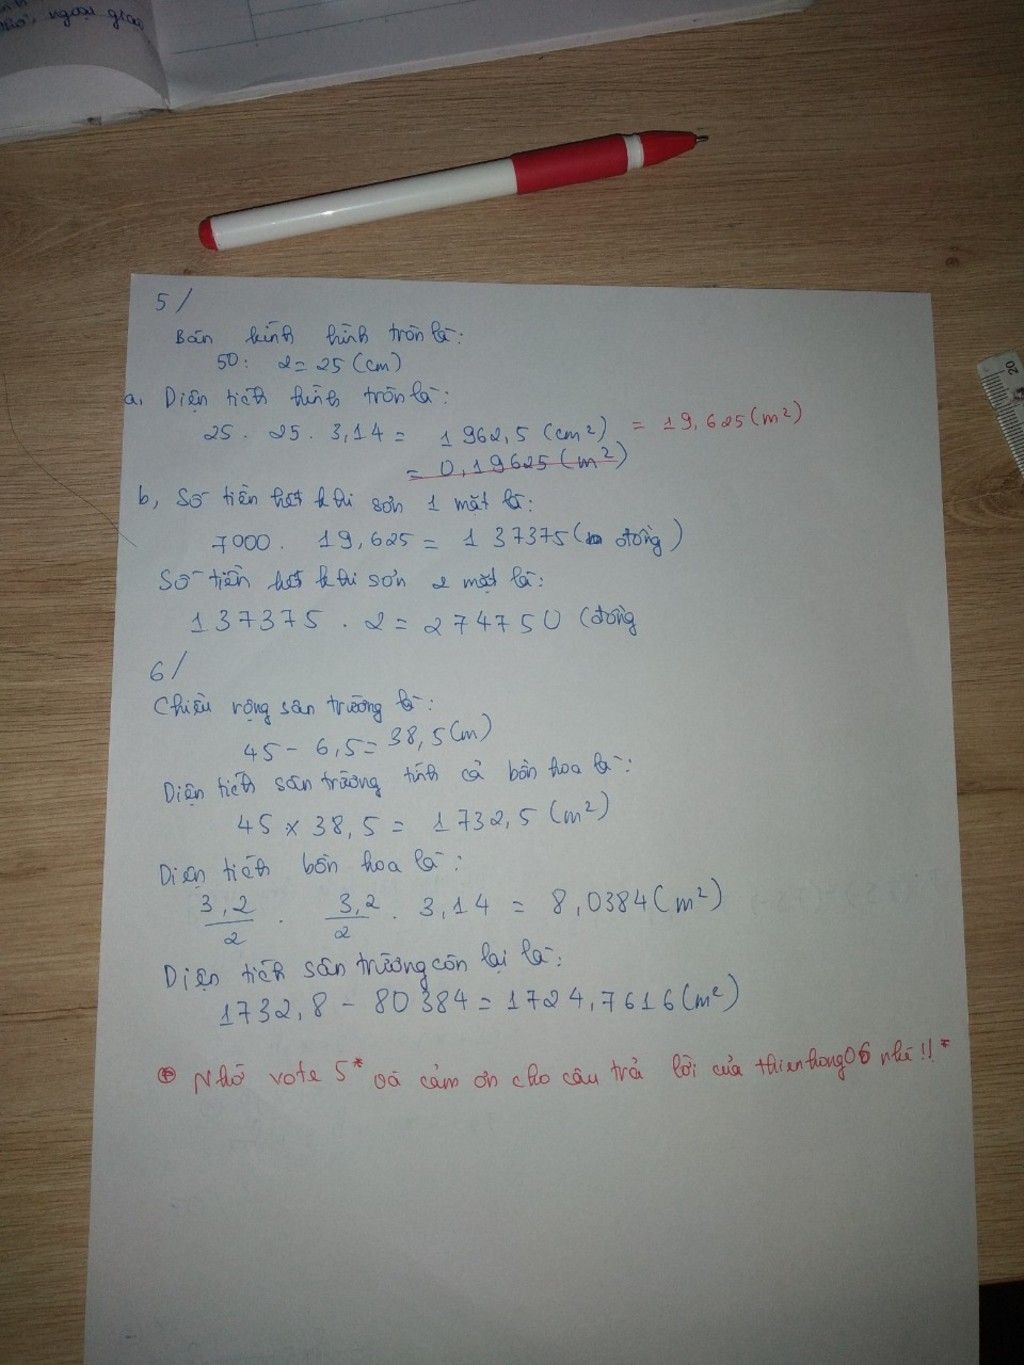 ngoại giao
20
5/
Bán kính hình tròn là:
50: 2 = 25 (cm)
a. Diện tích hình tròn là:
25 . 25 . 3,14 = 1962,5 (cm²) = 19,625 (m²)
= 0,19625 (m²)
b, Số tiền hết khi sơn 1 mặt là:
7000 . 19,625 = 137375 (đồng)
Số tiền hết khi sơn 2 mặt là:
137375 . 2 = 274750 (đồng
6/
Chiều rộng sân trường là:
45 - 6,5 = 38,5 (m)
Diện tích sân trường tính cả bồn hoa là:
45 x 38,5 = 1732,5 (m²)
Diện tích bồn hoa là:
3,2/2 . 3,2/2 . 3,14 = 8,0384 (m²)
Diện tích sân trường còn lại là:
1732,8 - 80384 = 1724,7616 (m²)
⊕ Nhớ vote 5* và cảm ơn cho câu trả lời của thienhong06 nhé!!*